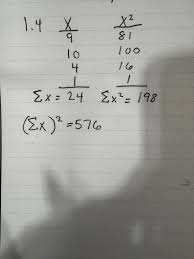 1.4 X X²
9 81
10 100
4 16
1 1
Σx = 24 Σx² = 198
(Σx)² = 576